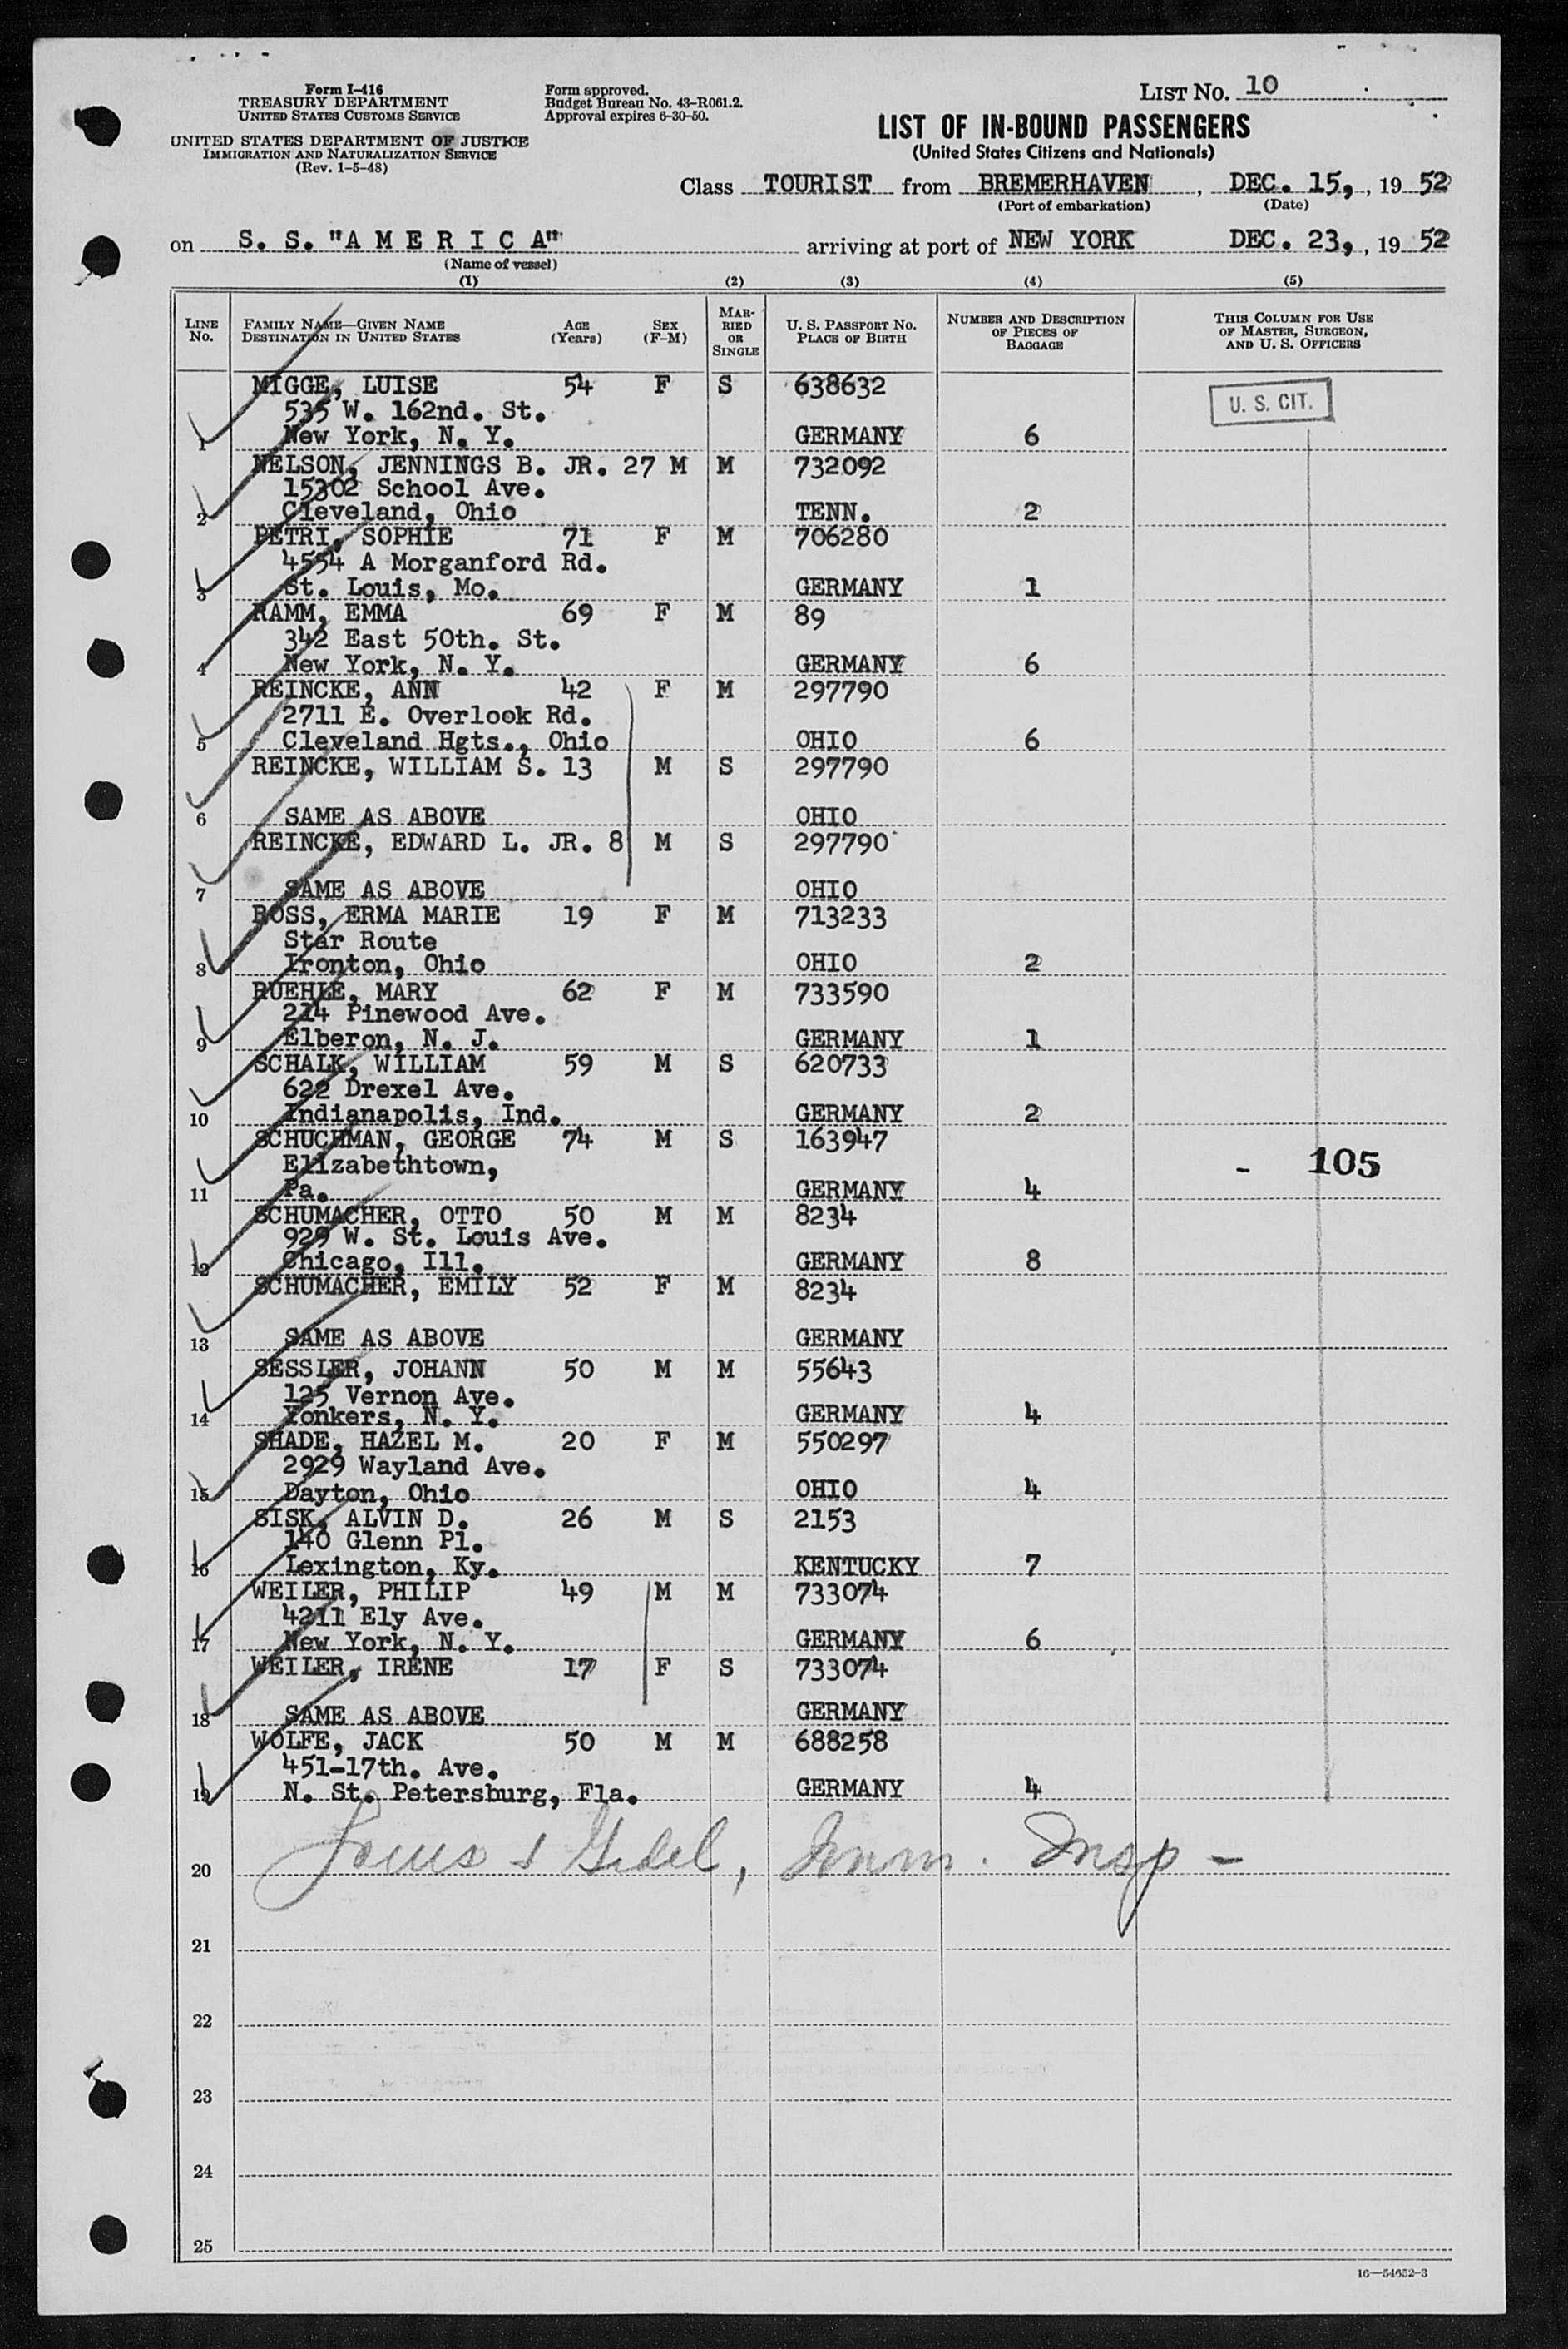 Form I-416
TREASURY DEPARTMENT
UNITED STATES CUSTOMS SERVICE
UNITED STATES DEPARTMENT OF JUSTICE
IMMIGRATION AND NATURALIZATION SERVICE
(Rev. 1-5-48)
Form approved.
Budget Bureau No. 43-R061.2.
Approval expires 6-30-50.
LIST NO. 10
LIST OF IN-BOUND PASSENGERS
(United States Citizens and Nationals)
Class TOURIST from BREMERHAVEN, DEC. 15, , 19 52
(Port of embarkation) (Date)
on S. S. "A M E R I C A" arriving at port of NEW YORK DEC. 23, , 19 52
(Name of vessel)
(1) (2) (3) (4) (5)
LINE No. FAMILY NAME—GIVEN NAME DESTINATION IN UNITED STATES AGE (Years) SEX (F-M) MARRIED OR SINGLE U. S. PASSPORT NO. PLACE OF BIRTH NUMBER AND DESCRIPTION OF PIECES OF BAGGAGE THIS COLUMN FOR USE OF MASTER, SURGEON, AND U. S. OFFICERS
MIGGE, LUISE 54 F S 638632 U. S. CIT.
535 W. 162nd. St.
1 New York, N. Y. GERMANY 6
NELSON, JENNINGS B. JR. 27 M M 732092
15302 School Ave.
2 Cleveland, Ohio TENN. 2
PETRI, SOPHIE 71 F M 706280
4554 A Morganford Rd.
3 St. Louis, Mo. GERMANY 1
RAMM, EMMA 69 F M 89
342 East 50th. St.
4 New York, N. Y. GERMANY 6
REINCKE, ANN 42 F M 297790
2711 E. Overlook Rd.
5 Cleveland Hgts., Ohio OHIO 6
REINCKE, WILLIAM S. 13 M S 297790
6 SAME AS ABOVE OHIO
REINCKE, EDWARD L. JR. 8 M S 297790
7 SAME AS ABOVE OHIO
ROSS, ERMA MARIE 19 F M 713233
Star Route
8 Ironton, Ohio OHIO 2
RUEHLE, MARY 62 F M 733590
214 Pinewood Ave.
9 Elberon, N. J. GERMANY 1
SCHALK, WILLIAM 59 M S 620733
622 Drexel Ave.
10 Indianapolis, Ind. GERMANY 2
SCHUCHMAN, GEORGE 74 M S 163947
Elizabethtown, - 105
11 Pa. GERMANY 4
SCHUMACHER, OTTO 50 M M 8234
929 W. St. Louis Ave.
12 Chicago, Ill. GERMANY 8
SCHUMACHER, EMILY 52 F M 8234
13 SAME AS ABOVE GERMANY
SESSLER, JOHANN 50 M M 55643
125 Vernon Ave.
14 Yonkers, N. Y. GERMANY 4
SHADE, HAZEL M. 20 F M 550297
2929 Wayland Ave.
15 Dayton, Ohio OHIO 4
SISK, ALVIN D. 26 M S 2153
140 Glenn Pl.
16 Lexington, Ky. KENTUCKY 7
WEILER, PHILIP 49 M M 733074
4211 Ely Ave.
17 New York, N. Y. GERMANY 6
WEILER, IRENE 17 F S 733074
18 SAME AS ABOVE GERMANY
WOLFE, JACK 50 M M 688258
451-17th. Ave.
19 N. St. Petersburg, Fla. GERMANY 4
20 Imm. Insp -
21
22
23
24
25
16—54652-3